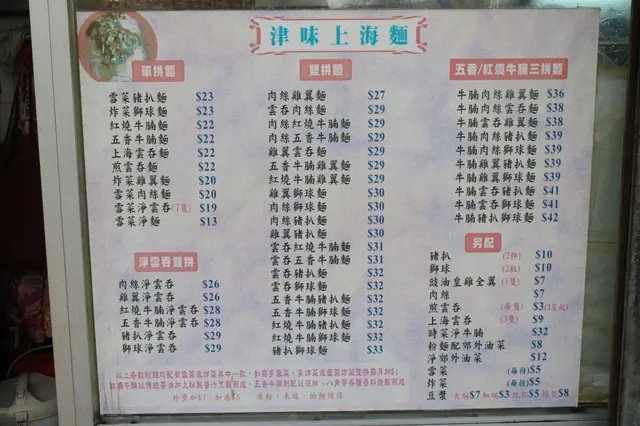 津味上海麵
單拼麵
雪菜豬扒麵 $23
炸菜獅球麵 $23
紅燒牛腩麵 $22
五香牛腩麵 $22
上海雲吞麵 $22
煎雲吞麵 $22
炸菜雞翼麵 $20
雪菜肉絲麵 $20
雪菜淨雲吞(7隻) $19
雪菜淨麵 $13
淨雲吞雙拼
肉絲淨雲吞 $26
雞翼淨雲吞 $26
紅燒牛腩淨雲吞 $28
五香牛腩淨雲吞 $28
豬扒淨雲吞 $29
獅球淨雲吞 $29
雙拼麵
肉絲雞翼麵 $27
雲吞肉絲麵 $29
肉絲紅燒牛腩麵 $29
肉絲五香牛腩麵 $29
雞翼雲吞麵 $29
五香牛腩雞翼麵 $29
紅燒牛腩雞翼麵 $29
雞翼獅球麵 $30
肉絲獅球麵 $30
肉絲豬扒麵 $30
雞翼豬扒麵 $30
雲吞紅燒牛腩麵 $31
雲吞五香牛腩麵 $31
雲吞豬扒麵 $32
雲吞獅球麵 $32
五香牛腩豬扒麵 $32
五香牛腩獅球麵 $32
紅燒牛腩豬扒麵 $32
紅燒牛腩獅球麵 $32
豬扒獅球麵 $33
五香/紅燒牛腩三拼麵
牛腩肉絲雞翼麵 $36
牛腩肉絲雲吞麵 $38
牛腩雲吞雞翼麵 $38
牛腩肉絲豬扒麵 $39
牛腩肉絲獅球麵 $39
牛腩雞翼豬扒麵 $39
牛腩雞翼獅球麵 $39
牛腩雲吞豬扒麵 $41
牛腩雲吞獅球麵 $41
牛腩豬扒獅球麵 $42
另配
豬扒 (2件) $10
獅球 (2粒) $10
豉油皇雞全翼 (1隻) $7
肉絲 $7
煎雲吞 (每隻) $3
上海雲吞 (3隻) $9
時菜淨牛腩 $32
粉麵配郊外油菜 $8
淨郊外油菜 $12
雪菜 (每份) $5
炸菜 (每份) $5
豆漿 $7 $3 $5 $8